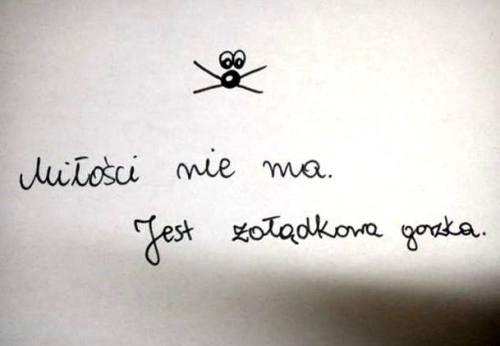 Miłości nie ma.
Jest żołądkowa gorzka.